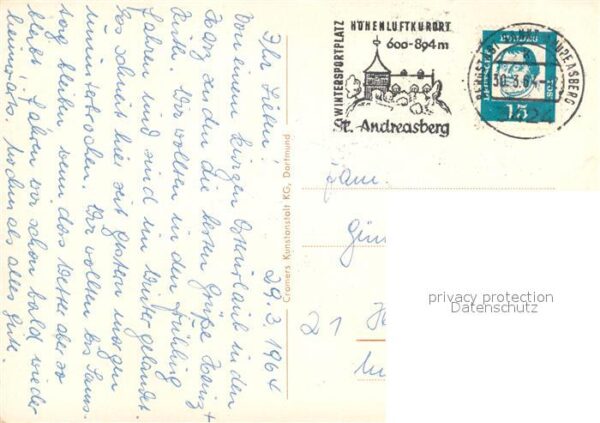 29.3.1964
Ihr Lieben!
Von einem kurzen Osterurlaub in den
Harz senden die besten Grüße Heinz +
Wir wollten in den Frühling
fahren und sind im Winter gelandet.
Es schneit hier seit gestern morgen
ununterbrochen. Wir wollten bis Sams-
tag bleiben, wenn das Wetter aber so
bleibt fahren wir schon bald wieder
heimwärts. nochmals alles Gute.
Cramers Kunstanstalt KG, Dortmund
WINTERSPORTPLATZ
HÖHENLUFTKURORT
600-894m
St. Andreasberg
30.3.64
15
Fam.
21
privacy protection
Datenschutz